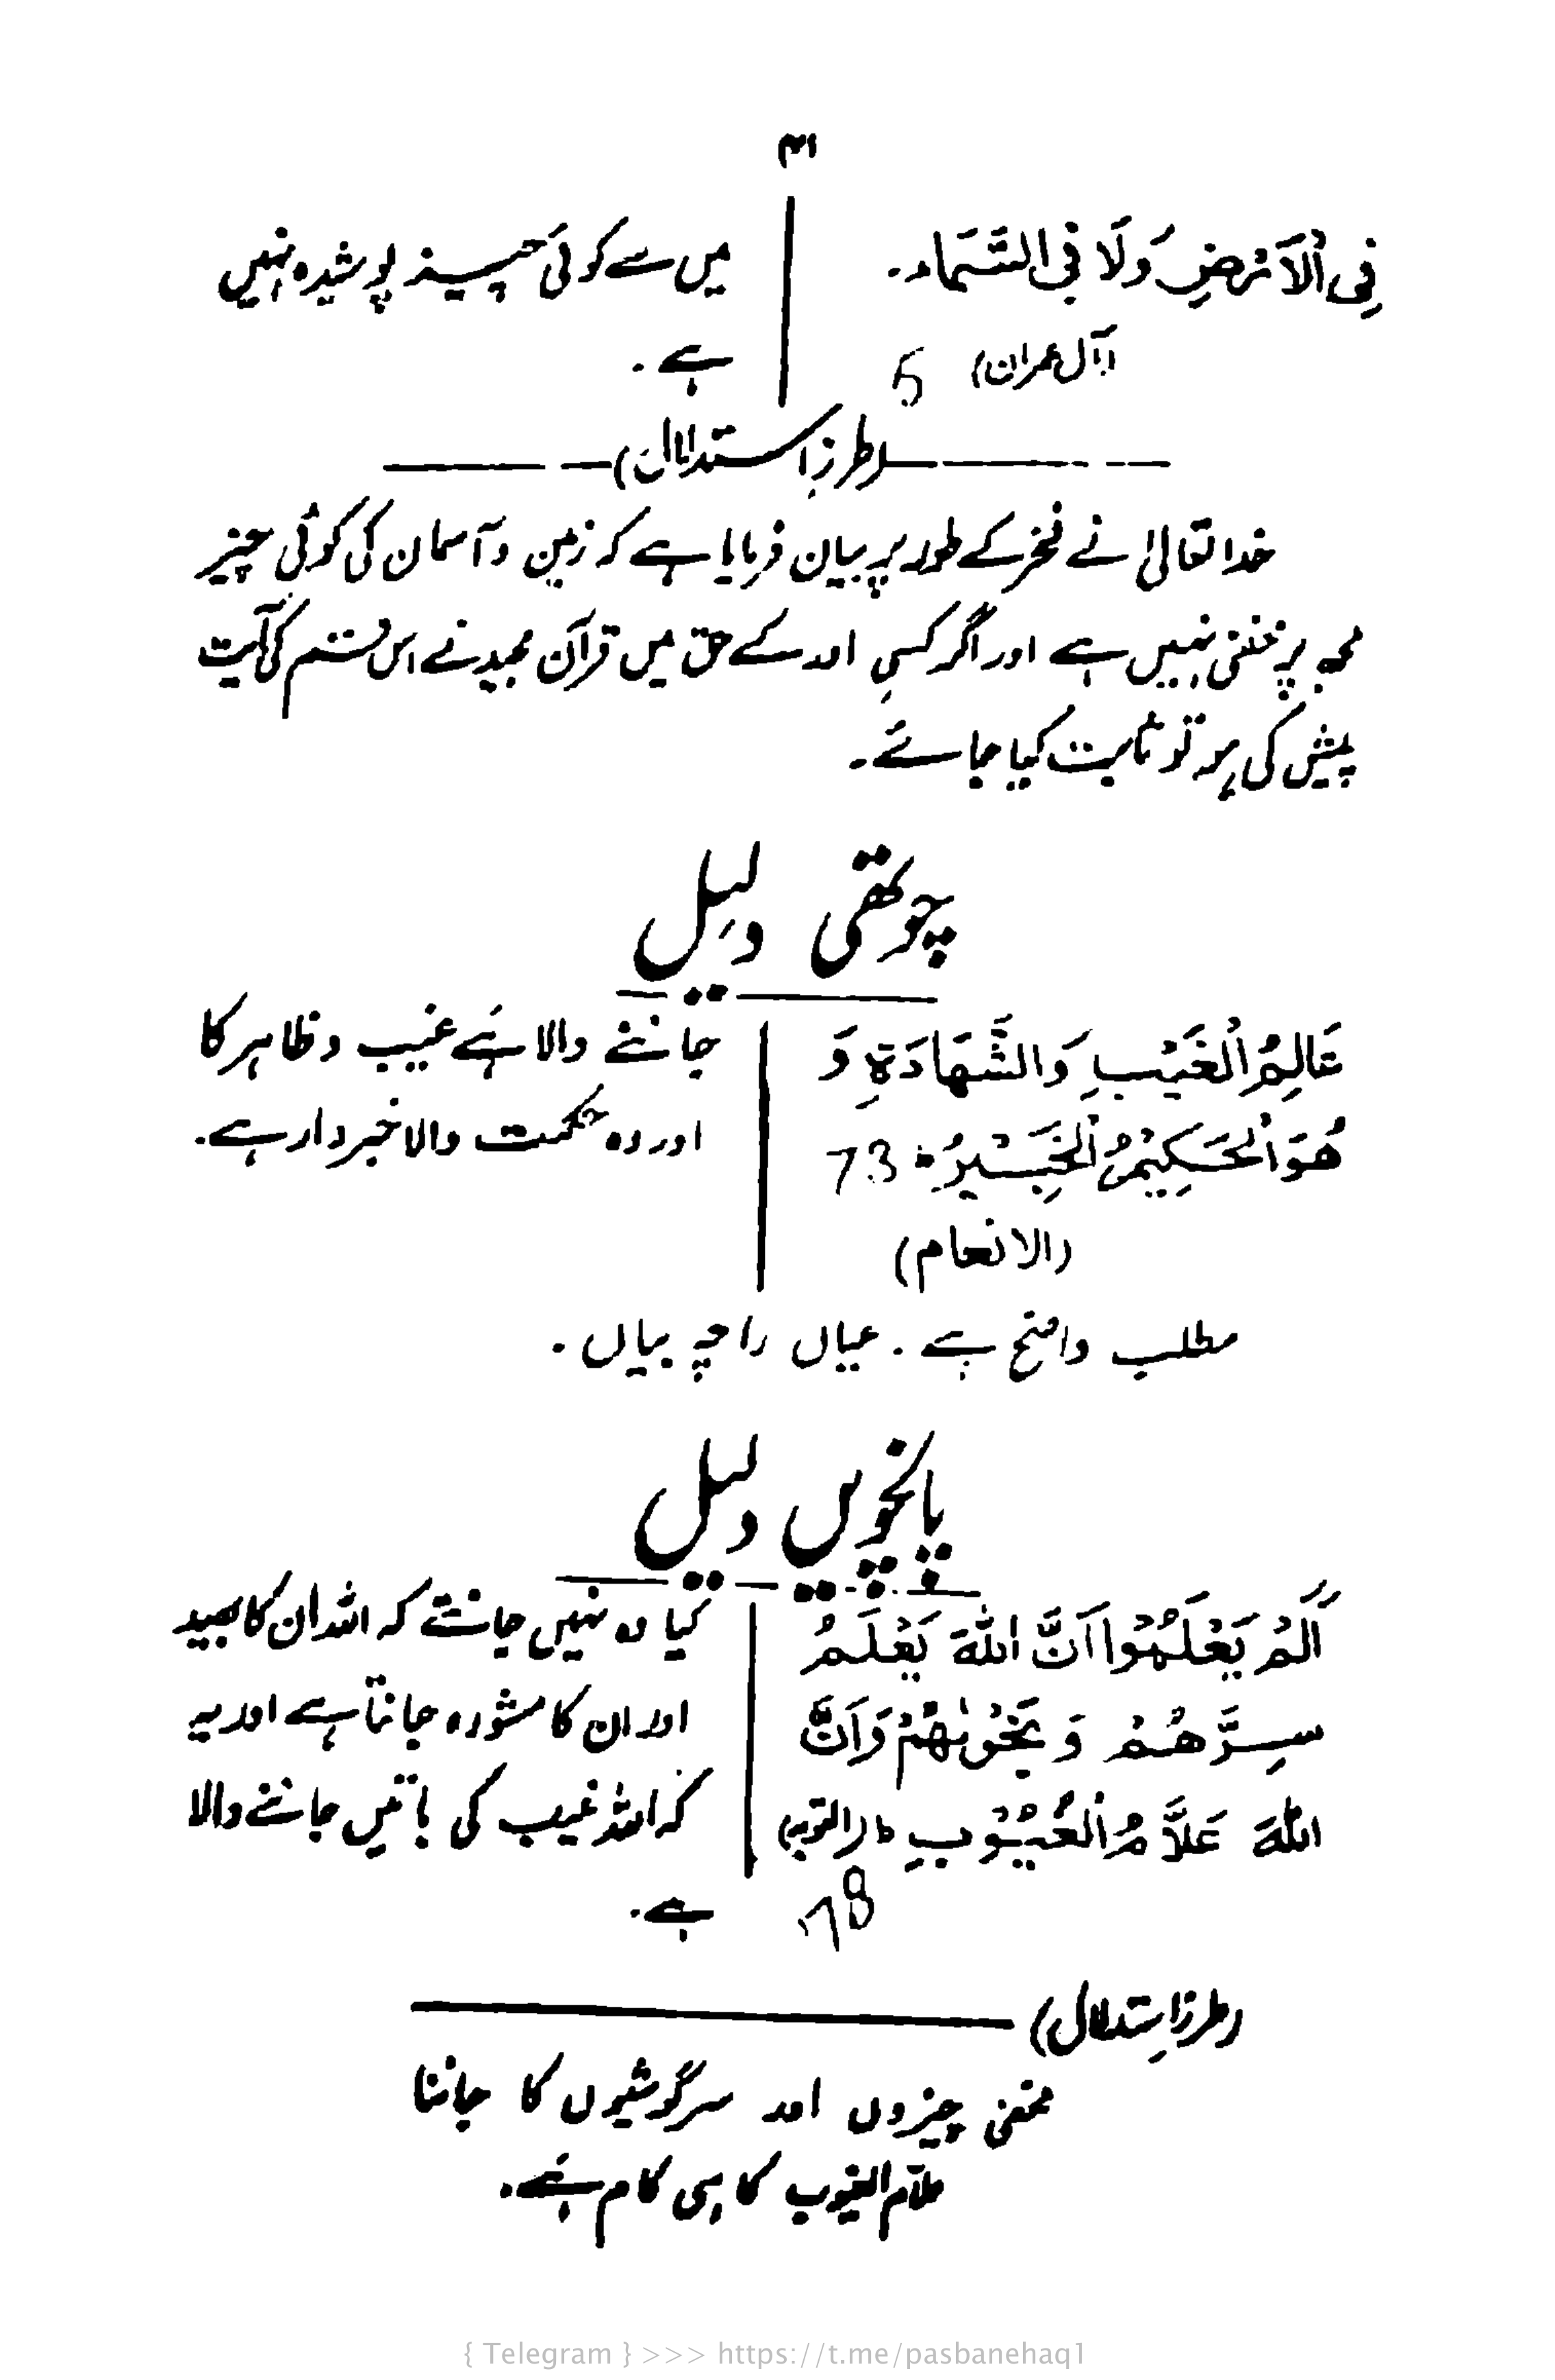 ۳
فِی الْاَرْضِ وَلَا فِی السَّمَاء۔
(آل عمران) 6
میں سے کوئی چیز پوشیدہ نہیں
ہے۔
(طرز استدلال)
خدا تعالیٰ نے فخر کے طور پر بیان فرمایا ہے کہ زمین و آسمان کی کوئی چیز
مجھ پر مخفی نہیں ہے اور اگر کسی اور کے حق میں قرآن مجید نے اس قسم کی آیت
پیش کی ہو تو ثابت کیا جائے۔
چوتھی دلیل
عَالِمُ الْغَیْبِ وَالشَّهَادَةِ وَ
هُوَ الْحَکِیْمُ الْخَبِیْرُ ۰ 73
(الانعام)
جاننے والا ہے غیب و ظاہر کا
اور وہ حکمت والا خبردار ہے۔
مطلب واضح ہے۔ عیاں را چہ بیاں۔
پانچویں دلیل
اَلَمْ یَعْلَمُوْا اَنَّ اللّٰهَ یَعْلَمُ
سِرَّهُمْ وَ نَجْوٰىهُمْ وَاَنَّ
اللّٰهَ عَلَّامُ الْغُیُوْبِ ط (التوبہ)
78
کیا وہ نہیں جانتے کہ اللہ ان کا بھید
اور ان کا مشورہ جانتا ہے اور یہ
کہ اللہ غیب کی باتیں جاننے والا
ہے۔
(طرز استدلال)
مخفی چیزوں اور سرگوشیوں کا جاننا
علّام الغیوب کا ہی کام ہے۔
{ Telegram } >>> https://t.me/pasbanehaq1